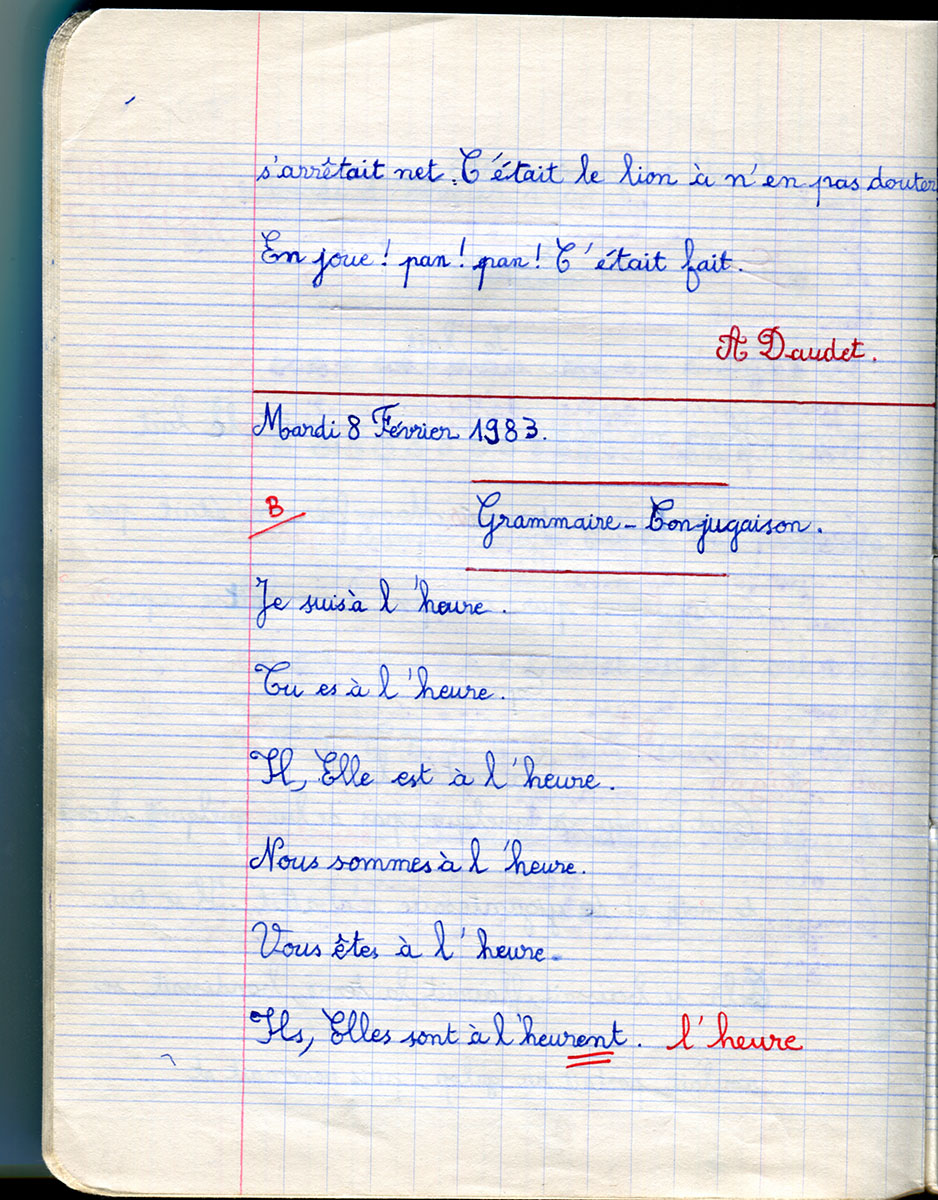 s'arrêtait net. C'était le lion à n'en pas douter
En joue ! pan ! pan ! C'était fait.
A Daudet.
Mardi 8 Février 1983.
B
Grammaire - Conjugaison.
Je suis à l'heure.
Tu es à l'heure.
Il, Elle est à l'heure.
Nous sommes à l'heure.
Vous êtes à l'heure.
Ils, Elles sont à l'heurent. l'heure